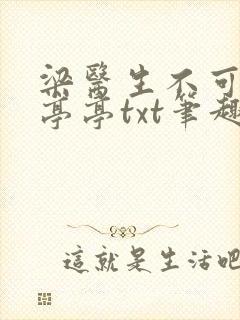 梁醫生不可
亭亭txt筆趣
這就是生活吧